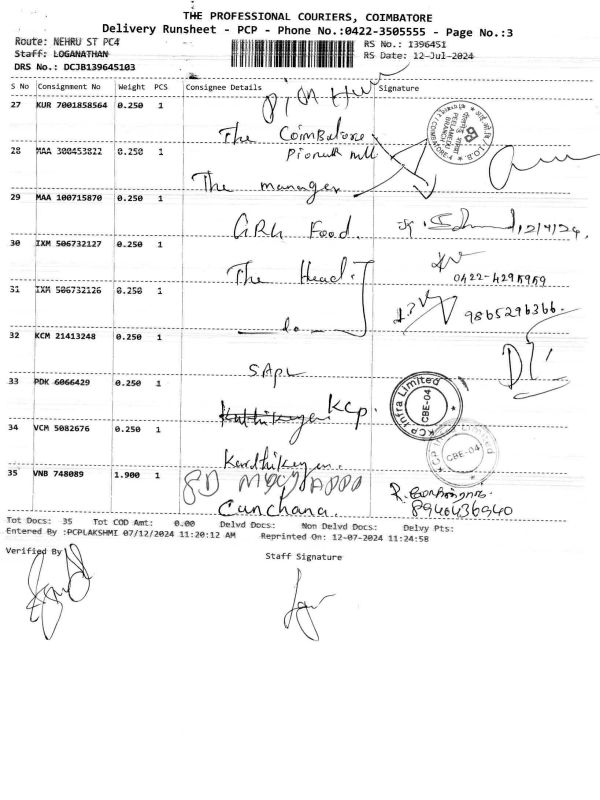 THE PROFESSIONAL COURIERS, COIMBATORE
Delivery Runsheet - PCP - Phone No.:0422-3505555 - Page No.:3
Route: NEHRU ST PC4
RS No.: 1396451
Staff: LOGANATHAN
RS Date: 12-Jul-2024
DRS No.: DCJB139645103
S No Consignment No Weight PCS Consignee Details Signature
27 KUR 7001858564 0.250 1
The Coimbatore
Pioneer mill
28 MAA 300453822 0.250 1
The manager
29 MAA 100715870 0.250 1
GRG Food. 12/7/24
30 IXM 506732127 0.250 1
The Head. 0422-4295959
31 IXM 506732126 0.250 1
do 9865296366
32 KCM 21413248 0.250 1
SAPL
33 PDK 6066429 0.250 1
KCP.
KCP Infra Limited
CBE-04
34 VCM 5082676 0.250 1
Karthikeyan.
CBE-04
35 VNB 748089 1.900 1
Canchana. 8940436940
Tot Docs: 35 Tot COD Amt: 0.00 Delvd Docs: Non Delvd Docs: Delvy Pts:
Entered By :PCPLAKSHMI 07/12/2024 11:20:12 AM Reprinted On: 12-07-2024 11:24:58
Verified By
Staff Signature